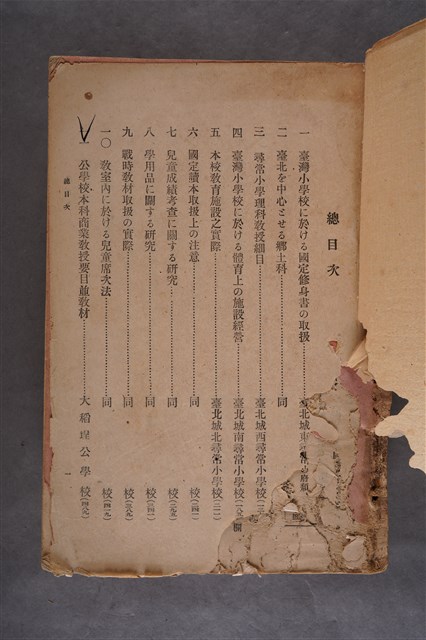 總目次
一 臺灣小學校に於ける國定修身書の取扱 臺北城東
二 臺北を中心とせる鄕土科 同
三 尋常小學理科敎授細目 臺北城西尋常小學校
四 臺灣小學校に於ける體育上の施設經營 臺北城南尋常小學校
五 本校敎育施設之實際 臺北城北尋常小學校
六 國定讀本取扱上の注意 同 校
七 兒童成績考查に關する硏究 同 校
八 學用品に關する硏究 同 校
九 戰時敎材取扱の實際 同 校
一〇 敎室內に於ける兒童席次法 同 校
一 公學校本科商業敎授要目並敎材 大稻埕公學校
總目次
一